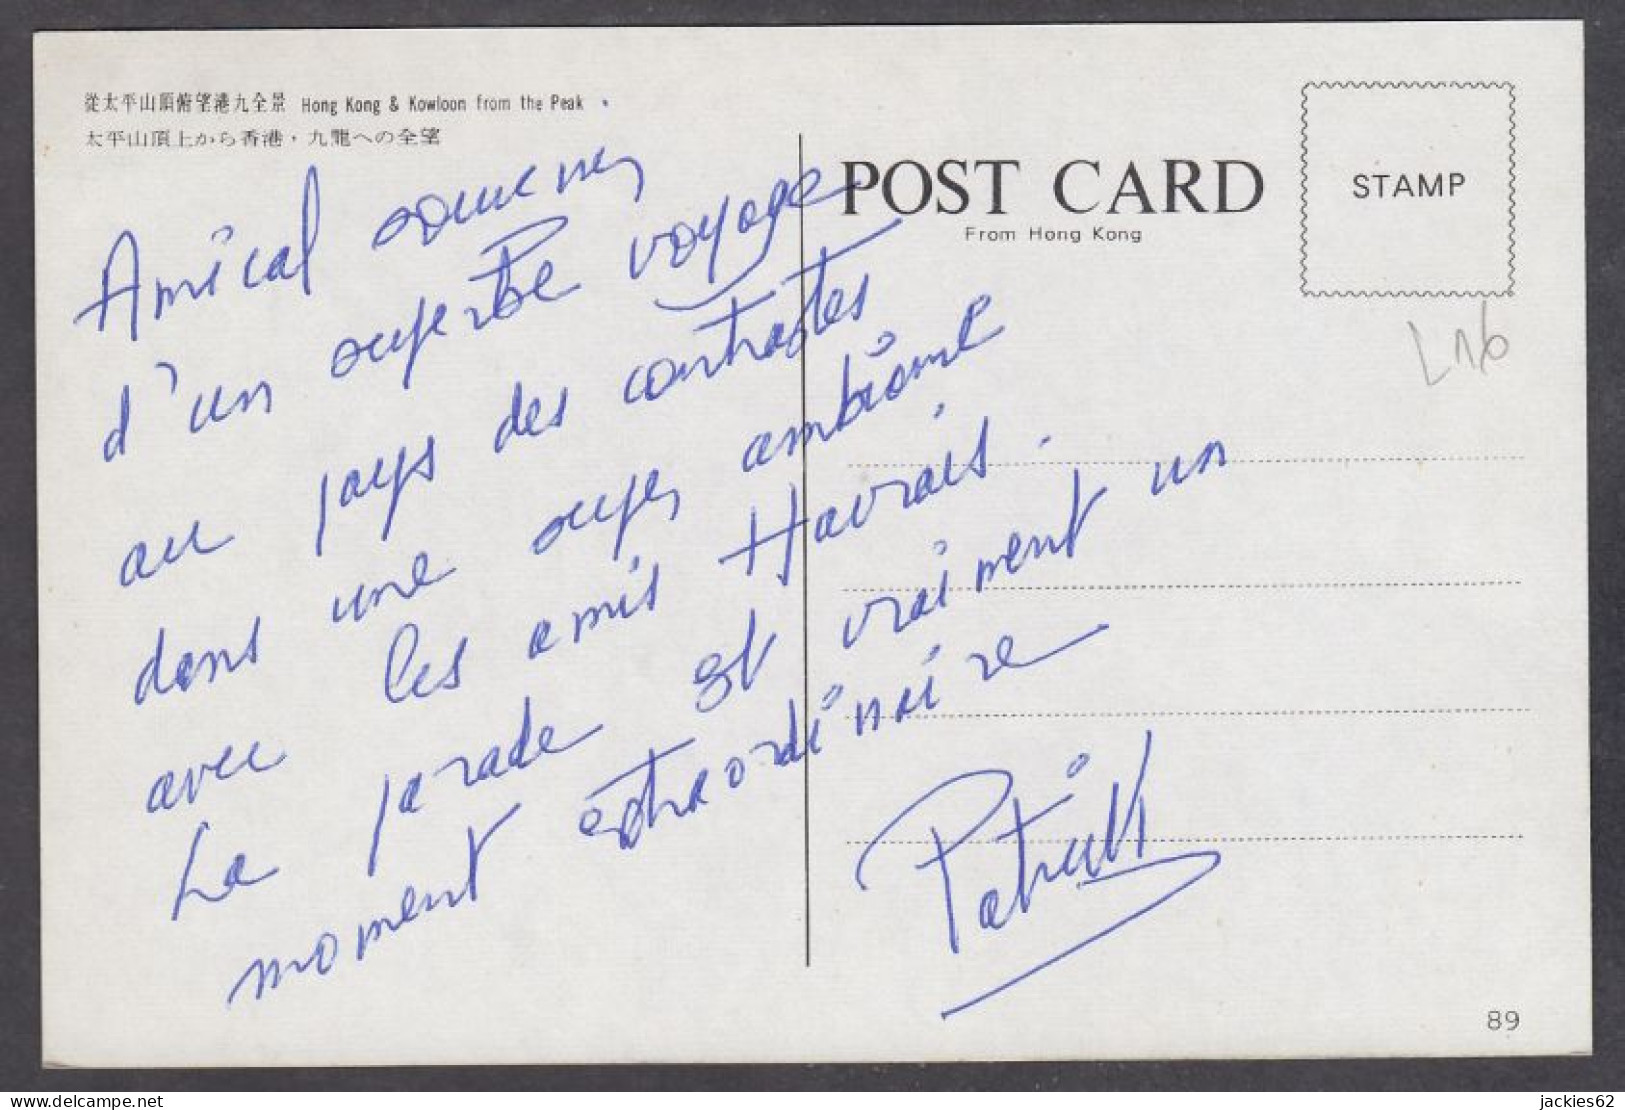 從太平山頂俯望港九全景 Hong Kong & Kowloon from the Peak
太平山頂上から香港・九龍への全望
POST CARD
From Hong Kong
STAMP
L16
Amical souvenir
d'un superbe voyage
au pays des contrastes
dans une super ambiance
avec les amis Havrais.
La parade est vraiment un
moment extraordinaire
Patrick
89
delcampe.net
jackies62